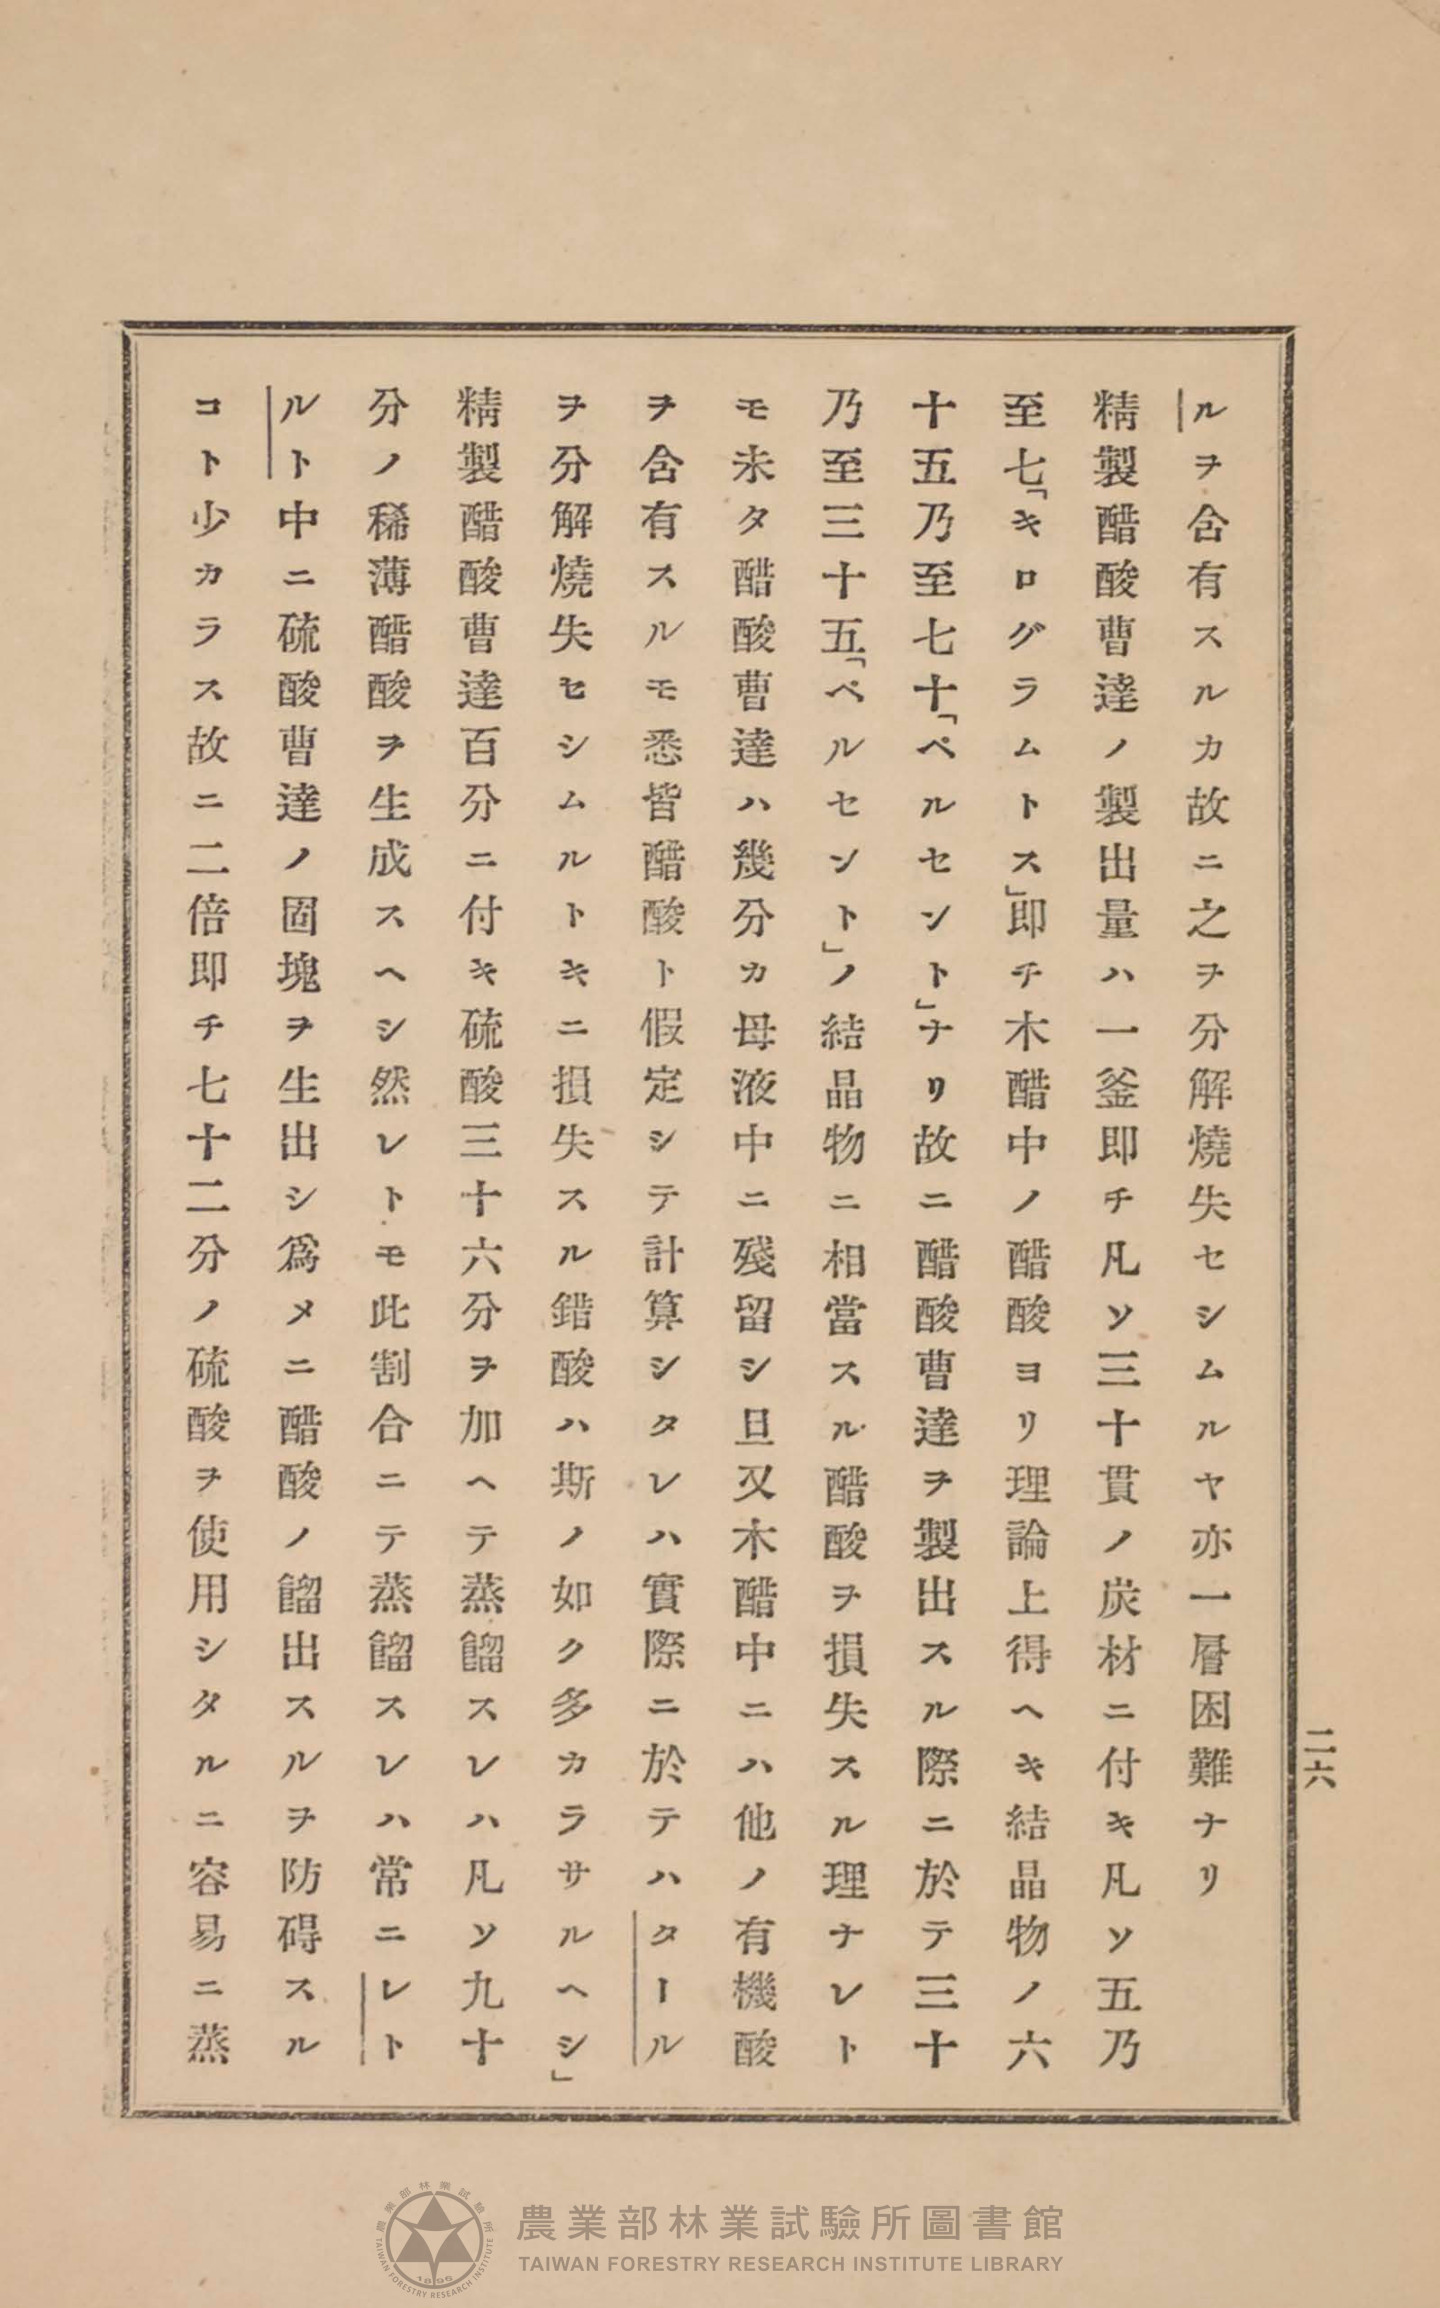 ルヲ含有スルカ故ニ之ヲ分解燒失セシムルヤ亦一層困難ナリ
精製醋酸曹達ノ製出量ハ一釜即チ凡ソ三十貫ノ炭材ニ付キ凡ソ五乃
至七「キログラムトス」即チ木醋中ノ醋酸ヨリ理論上得ヘキ結晶物ノ六
十五乃至七十「ペルセント」ナリ故ニ醋酸曹達ヲ製出スル際ニ於テ三十
乃至三十五「ペルセント」ノ結晶物ニ相當スル醋酸ヲ損失スル理ナレト
モ未タ醋酸曹達ハ幾分カ母液中ニ殘留シ且又木醋中ニハ他ノ有機酸
ヲ含有スルモ悉皆醋酸ト假定シテ計算シタレハ實際ニ於テハタール
ヲ分解燒失セシムルトキニ損失スル錯酸ハ斯ノ如ク多カラサルヘシ」
精製醋酸曹達百分ニ付キ硫酸三十六分ヲ加ヘテ蒸餾スレハ凡ソ九十
分ノ稀薄醋酸ヲ生成スヘシ然レトモ此割合ニテ蒸餾スレハ常ニレト
ルト中ニ硫酸曹達ノ固塊ヲ生出シ爲メニ醋酸ノ餾出スルヲ防碍スル
コト少カラス故ニ二倍即チ七十二分ノ硫酸ヲ使用シタルニ容易ニ蒸
二六
農業部林業試驗所圖書館
TAIWAN FORESTRY RESEARCH INSTITUTE LIBRARY
農業部林業試驗所
1896
TAIWAN FORESTRY RESEARCH INSTITUTE